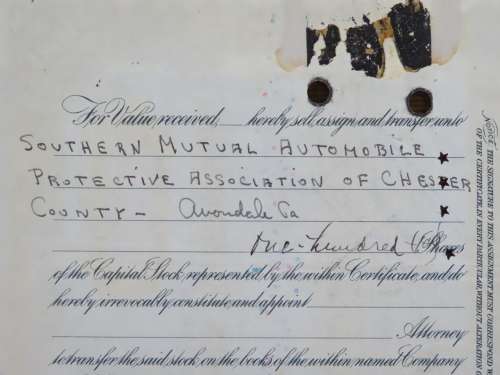 For Value received, hereby sell, assign and transfer unto
SOUTHERN MUTUAL AUTOMOBILE
PROTECTIVE ASSOCIATION OF CHESTER
COUNTY - Avondale Pa
One-hundred Shares
of the Capital Stock represented by the within Certificate, and do
hereby irrevocably constitute and appoint
Attorney
to transfer the said stock on the books of the within named Company
NOTICE THE SIGNATURE TO THIS ASSIGNMENT MUST CORRESPOND
OF THE CERTIFICATE IN EVERY PARTICULAR, WITHOUT ALTERATION O